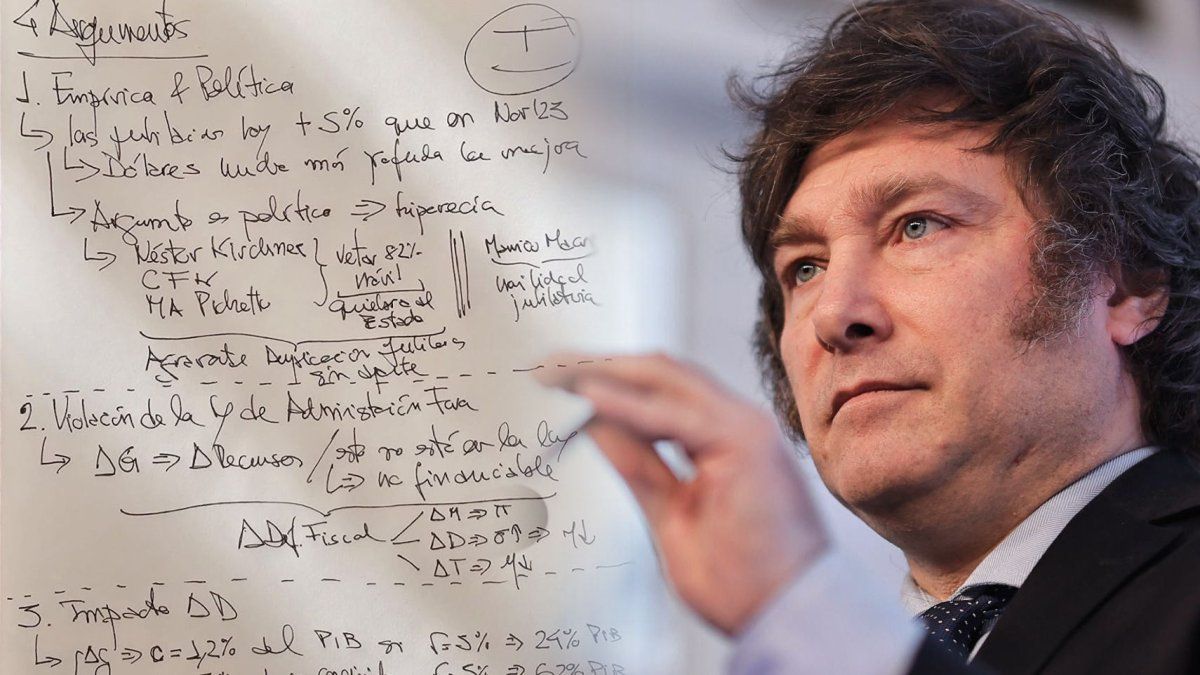 4 Argumentos
1. Empírica & Política
↳ las jubilaciones hoy +5% que en Nov'23
↳ Dólares mucho más profunda la mejora
↳ Argumento es político ⇒ hiperecia
↳ Néstor Kirchner
CFK
MA Pichetto
vetar 82% móvil
quiebra al Estado
Mauricio Macri
movilidad jubilatoria
Agravante Duplicación Jubilados sin aporte
2. Violación de la Ley de Administración Fcra
↳ ΔG ⇒ ΔRecursos / esto no está en la ley
↳ no financiable
ΔDef. Fiscal
ΔM ⇒ π
ΔD ⇒ σ↑ ⇒ Y↓
ΔT ⇒ Y↓
3. Impacto ΔD
↳ ΔG ⇒ C = 1,2% del PIB si r=5% ⇒ 24% PIB
r=5% ⇒ 62% PIB